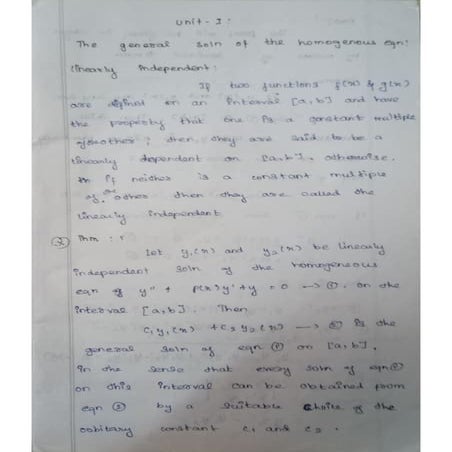 Unit - I :
The general soln of the homogenous eqn:
linearly independent:
If two functions f(x) & g(x)
are defined on an interval [a, b] and have
the property that one is a constant multiple
of another, then they are said to be a
linearly dependent on [a, b]. otherwise.
if neither is a constant multiple
of other then they are called the
linearly independent
Thm : 1
Let y₁(x) and y₂(x) be linearly
independent soln of the homogeneous
eqn of y'' + P(x)y' + y = 0 → ①. on the
interval [a, b]. Then
c₁y₁(x) + c₂y₂(x) → ② is the
general soln of eqn ① on [a, b].
in the sense that every soln of eqn ①
on this interval can be obtained from
eqn ② by a suitable choice of the
orbitary constant c₁ and c₂.